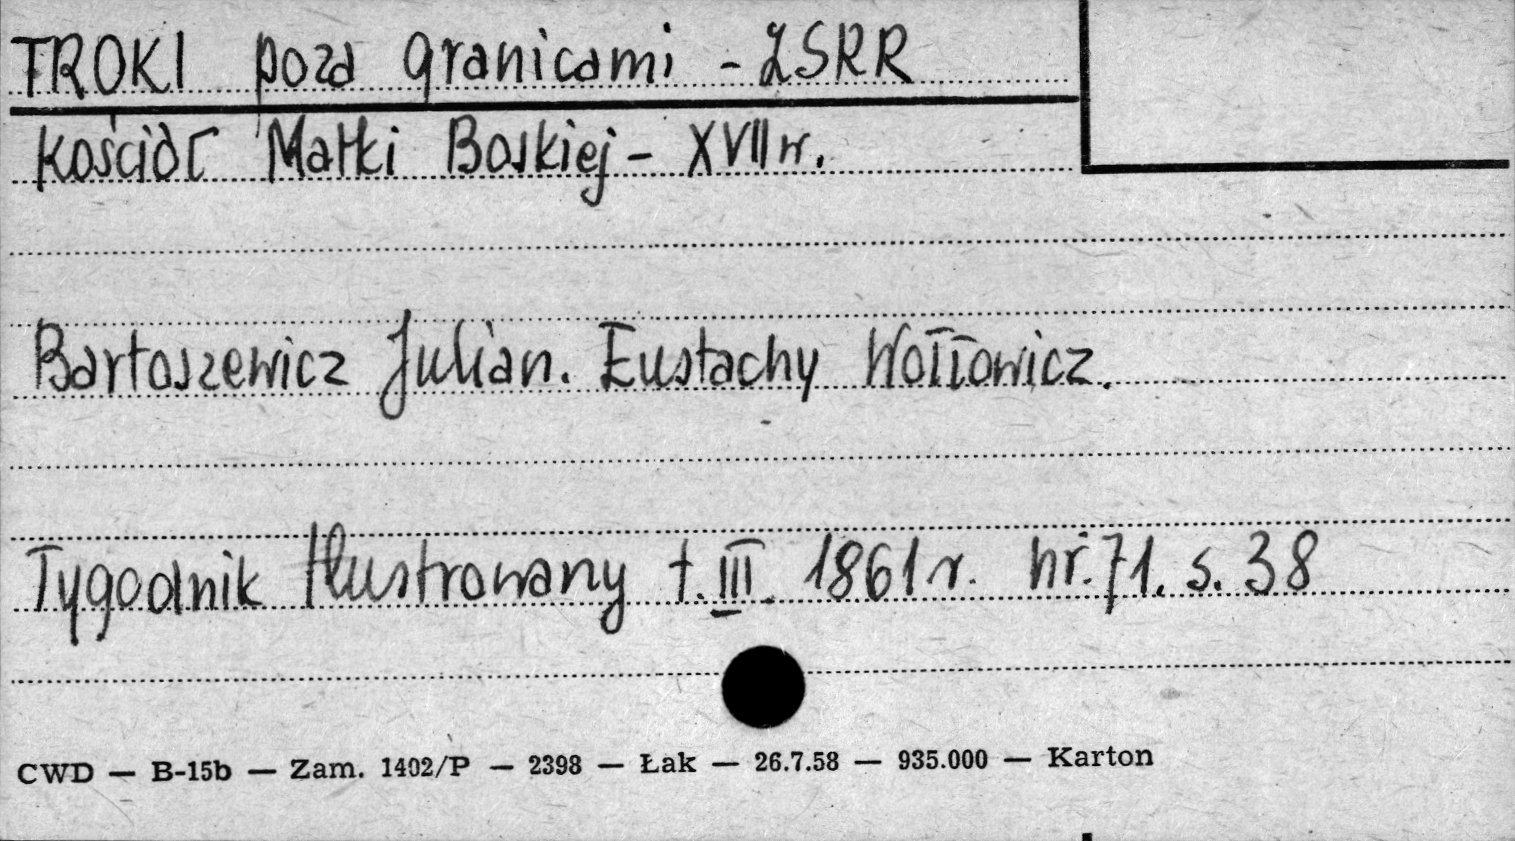 TROKI poza granicami - ZSRR
Kościół Matki Boskiej - XVII w.
Bartoszewicz Julian. Eustachy Wołłowicz.
Tygodnik Ilustrowany t. III. 1861 r. nr. 71. s. 38
CWD — B-15b — Zam. 1402/P — 2398 — Łak — 26.7.58 — 935.000 — Karton